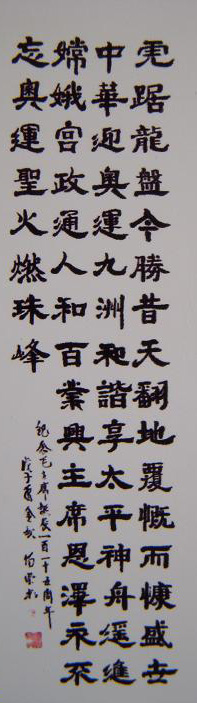 虎踞龍盤今勝昔天翻地覆慨而慷盛世
中華迎奧運九洲和諧享太平神舟遥進
嫦娥宮政通人和百業興主席恩澤永不
忘奧運聖火燃珠峰
纪念毛主席誕辰一百一十五周年
戊子